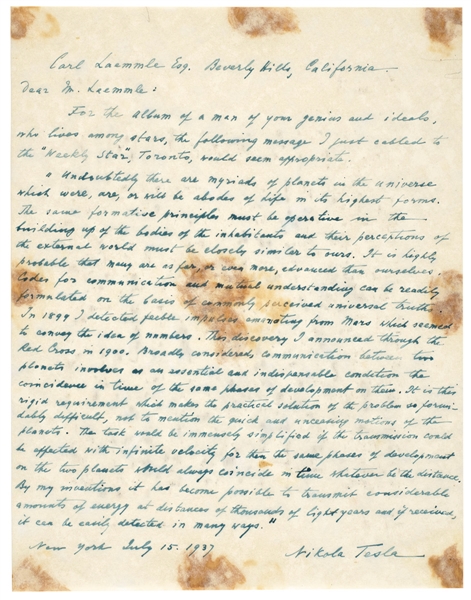 Carl Laemmle Esq. Beverly Hills, California.
Dear M. Laemmle:
For the album of a man of your genius and ideals,
who lives among stars, the following message I just cabled to
the "Weekly Star", Toronto, would seem appropriate.
"Undoubtedly there are myriads of planets in the universe
which were, are, or will be abodes of life in its highest forms.
The same formative principles must be operative in the
building up of the bodies of the inhabitants and their perceptions of
the external world must be closely similar to ours. It is highly
probable that many are as far, or even more, advanced than ourselves.
Codes for communication and mutual understanding can be readily
formulated on the basis of commonly perceived universal truths.
In 1899 I detected feeble impulses emanating from Mars which seemed
to convey the idea of numbers. This discovery I announced through the
Red Cross in 1900. Broadly considered communication between two
planets involves as an essential and indispensable condition the
coincidence in time of the same phases of development on them. It is this
rigid requirement which makes the practical solution of the problem so formi-
dably difficult, not to mention the quick and unceasing motions of the
planets. The task would be immensely simplified if the transmission could
be effected with infinite velocity for then the same phases of development
on the two planets would always coincide in time whatever be the distance.
By my inventions it has become possible to transmit considerable
amounts of energy at distances of thousands of light years and if received,
it can be easily detected in many ways."
New York July 15. 1937 Nikola Tesla